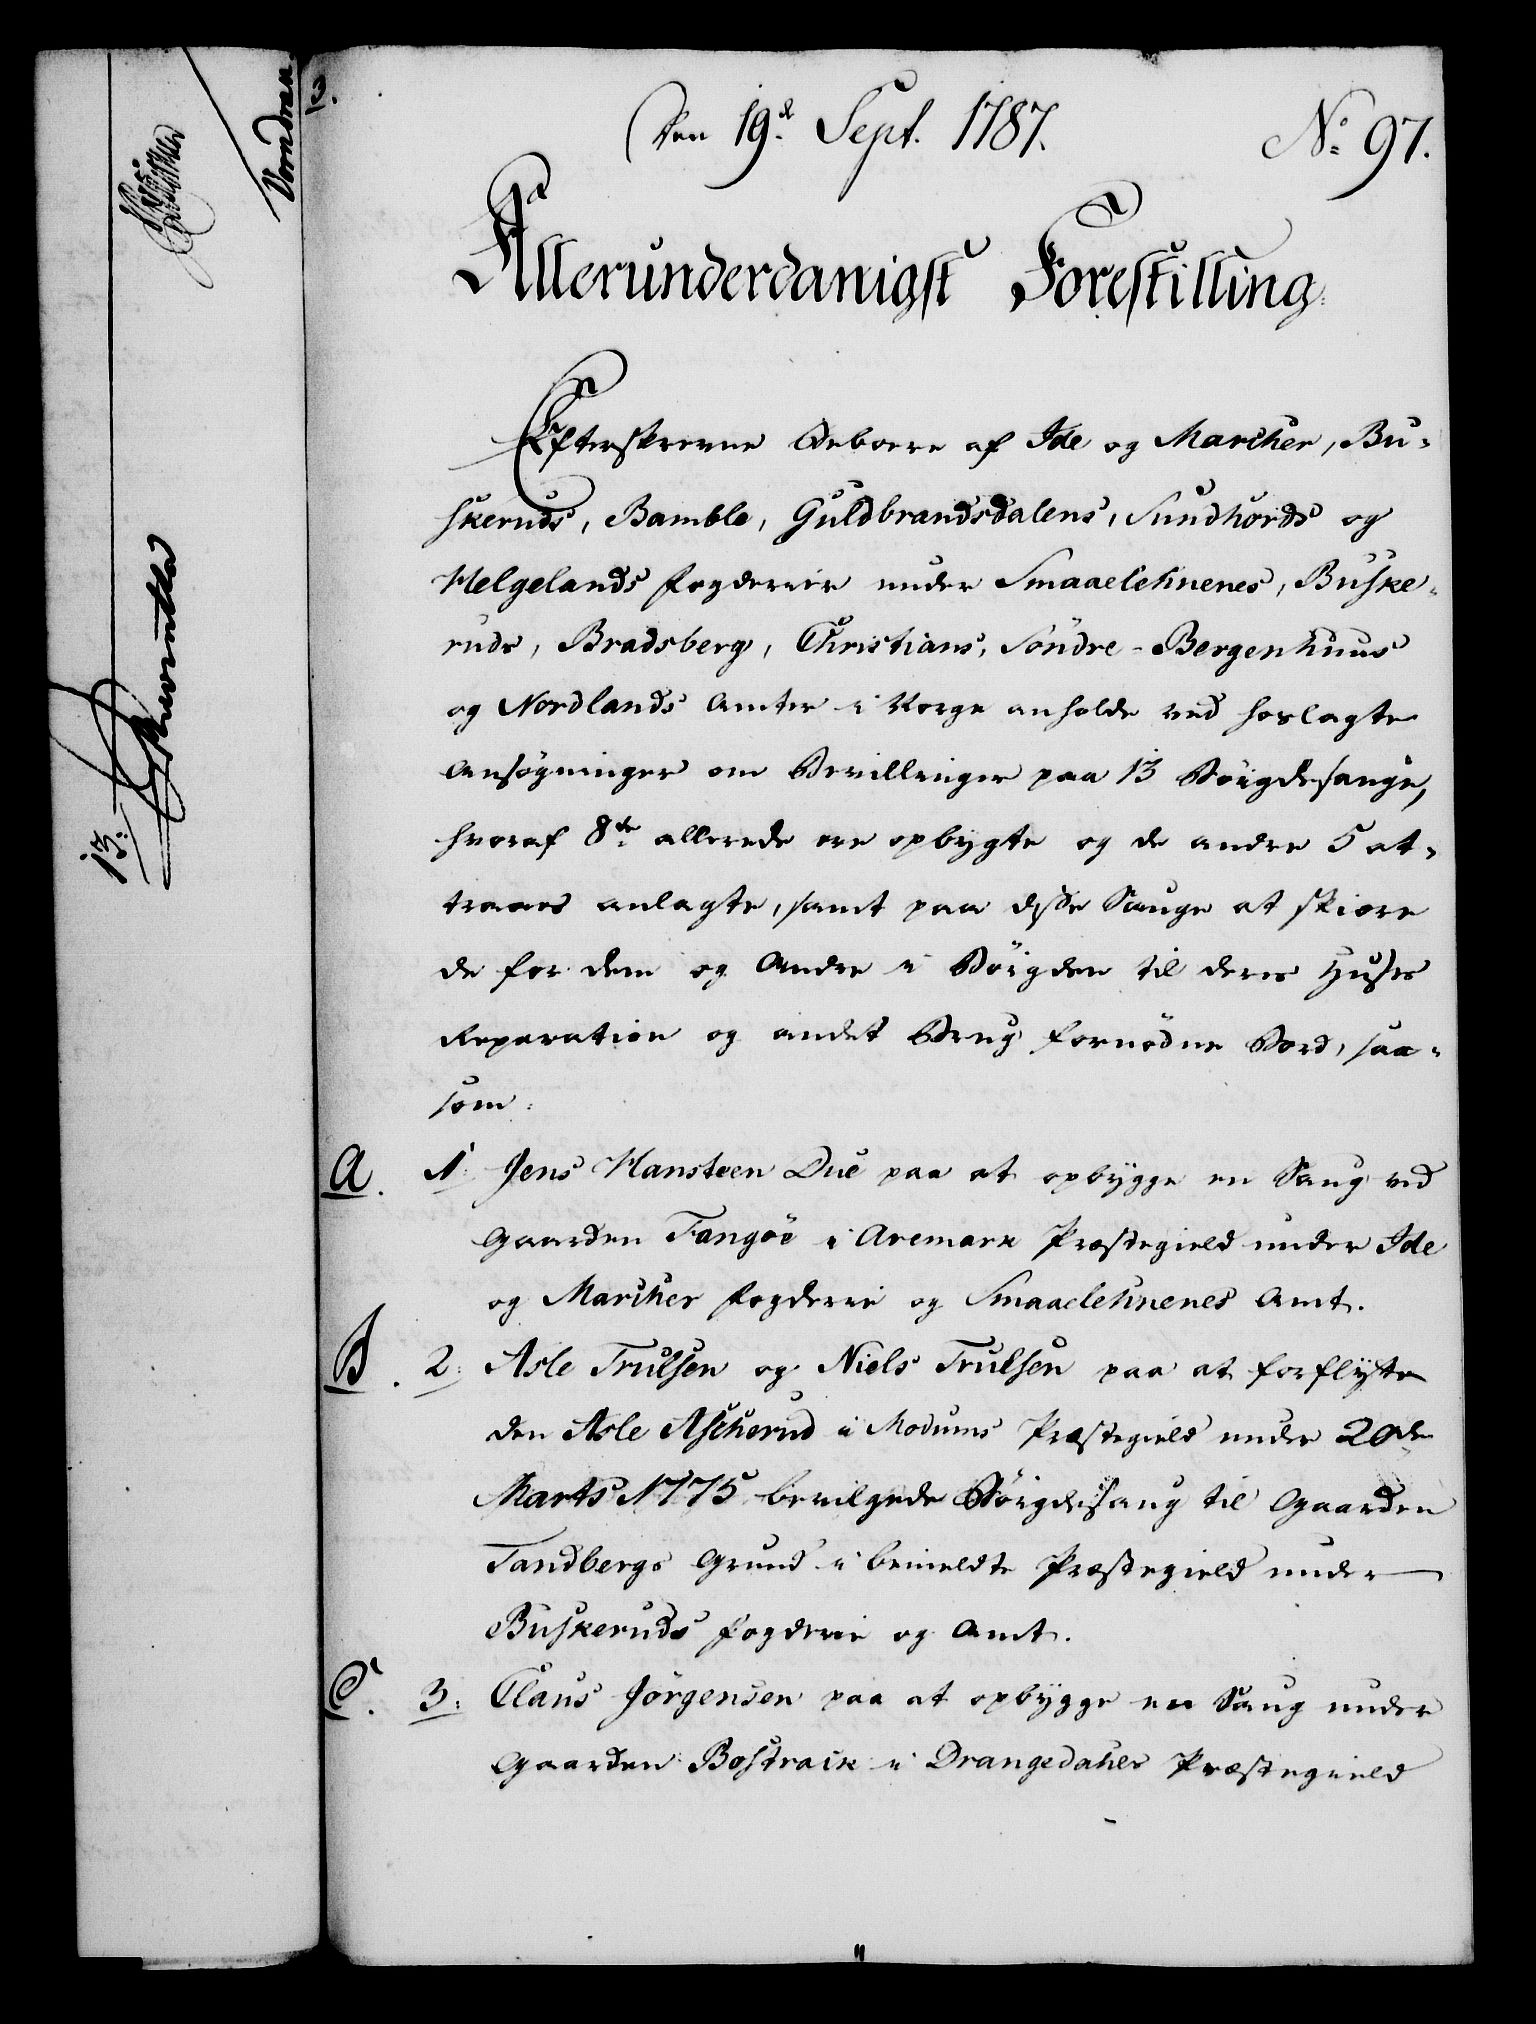 Den 19de Sept. 1787.
No 97.
Allerunderdanigst Forestilling.
Efterskrevne Beboere af Ide og Marcher, Bu-
skeruds, Bamble, Guldbrandsdalens, Sundhords og
Helgelands Fogderier under Smaaelehnenes, Buske-
ruds, Bradsberg, Christians, Söndre-Bergenhuus
og Nordlands Amter i Norge anholde ved hoslagte
Ansögninger om Bevillinger paa 13 Böigdesauge,
hvoraf 8te allerede ere opbygte og de andre 5 at-
traaes anlagte, samt paa disse Sauge at skiære
de for dem og Andre i Böigden til deres Huses
Reparation og andet Brug fornödne Bord, saa-
som:
A. 1. Jens Hansteen Due paa at opbygge en Saug ved
Gaarden Tangöe i Aremark Præstegield under Ide
og Marcher Fogderie og Smaaelehnenes Amt.
B. 2. Asle Trulsen og Niels Trulsen paa at forflytte
den Asle Ascherud i Modums Præstegield under 20de
Marts 1775 bevilgede Böigdesaug til Gaarden
Tandbergs Grund i bemeldte Præstegield under
Buskeruds Fogderie og Amt.
C. 3. Claus Jörgensen paa at opbygge en Saug under
Gaarden Bostrack i Drangedahls Præstegield
13.